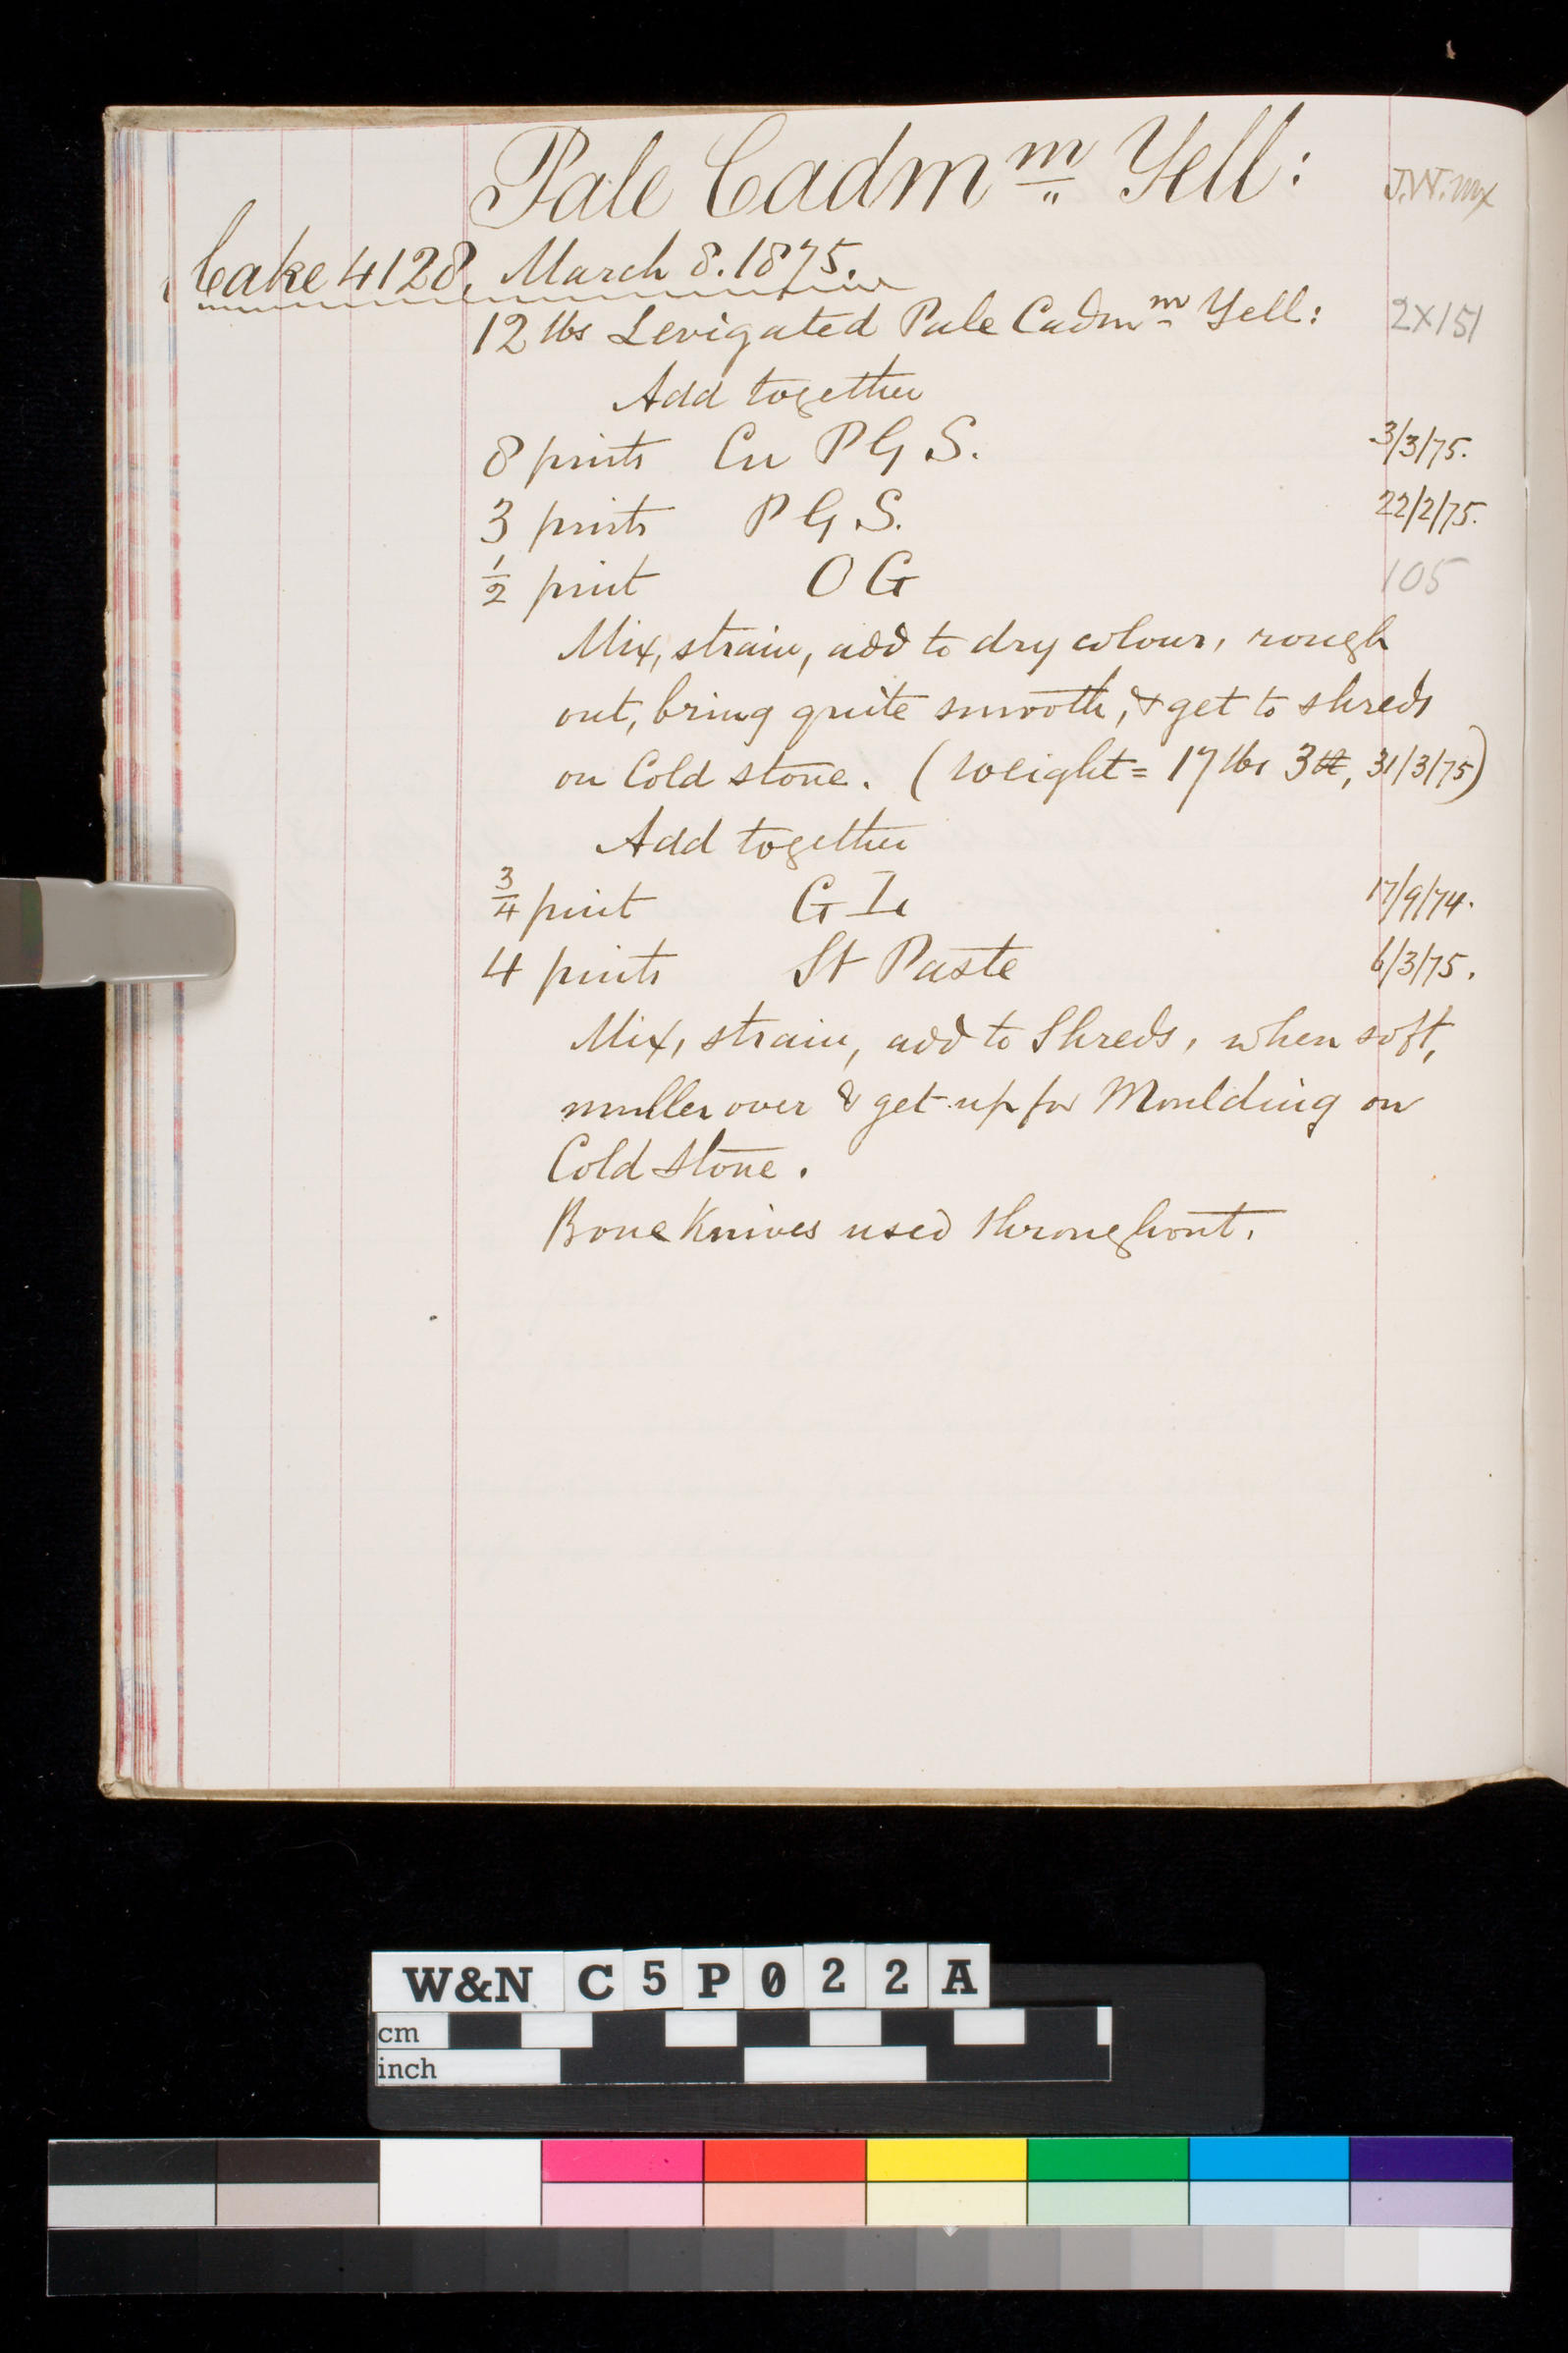 Pale Cadmm Yell: J.W.
Cake 4128, March 8. 1875.
12 lbs Levigated Pale Cadmm Yell: 2X151
Add together
8 pints Cu P G S. 3/3/75.
3 pints P G S. 22/2/75.
1/2 pint O G 105
Mix, strain, add to dry colour, rough
out, bring quite smooth, & get to shreds
on Cold stone. (Weight = 17 lbs 3 31/3/75)
Add together
3/4 pint G 17/9/74.
4 pints St Paste 6/3/75.
Mix, strain, add to Shreds, when soft,
muller over & get up for Moulding on
Cold stone.
Bone Knives used throughout.
W&N C5P022A
cm
inch